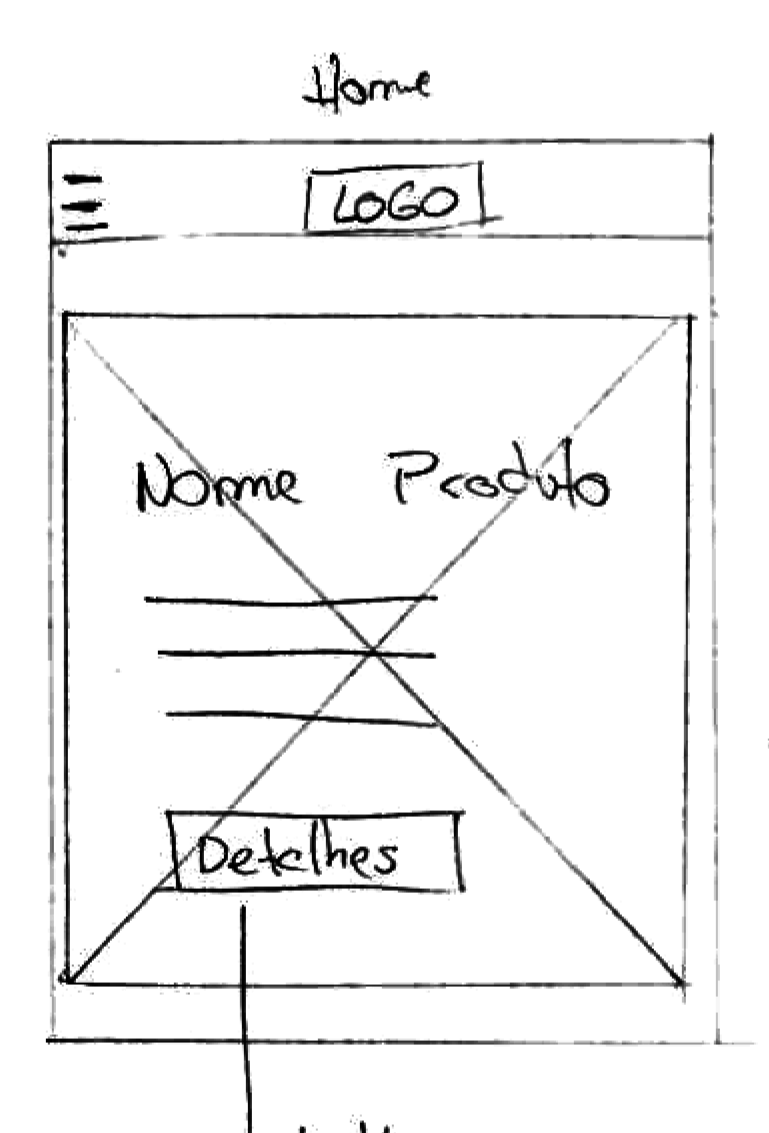 Home
LOGO
Nome Produto
Detalhes